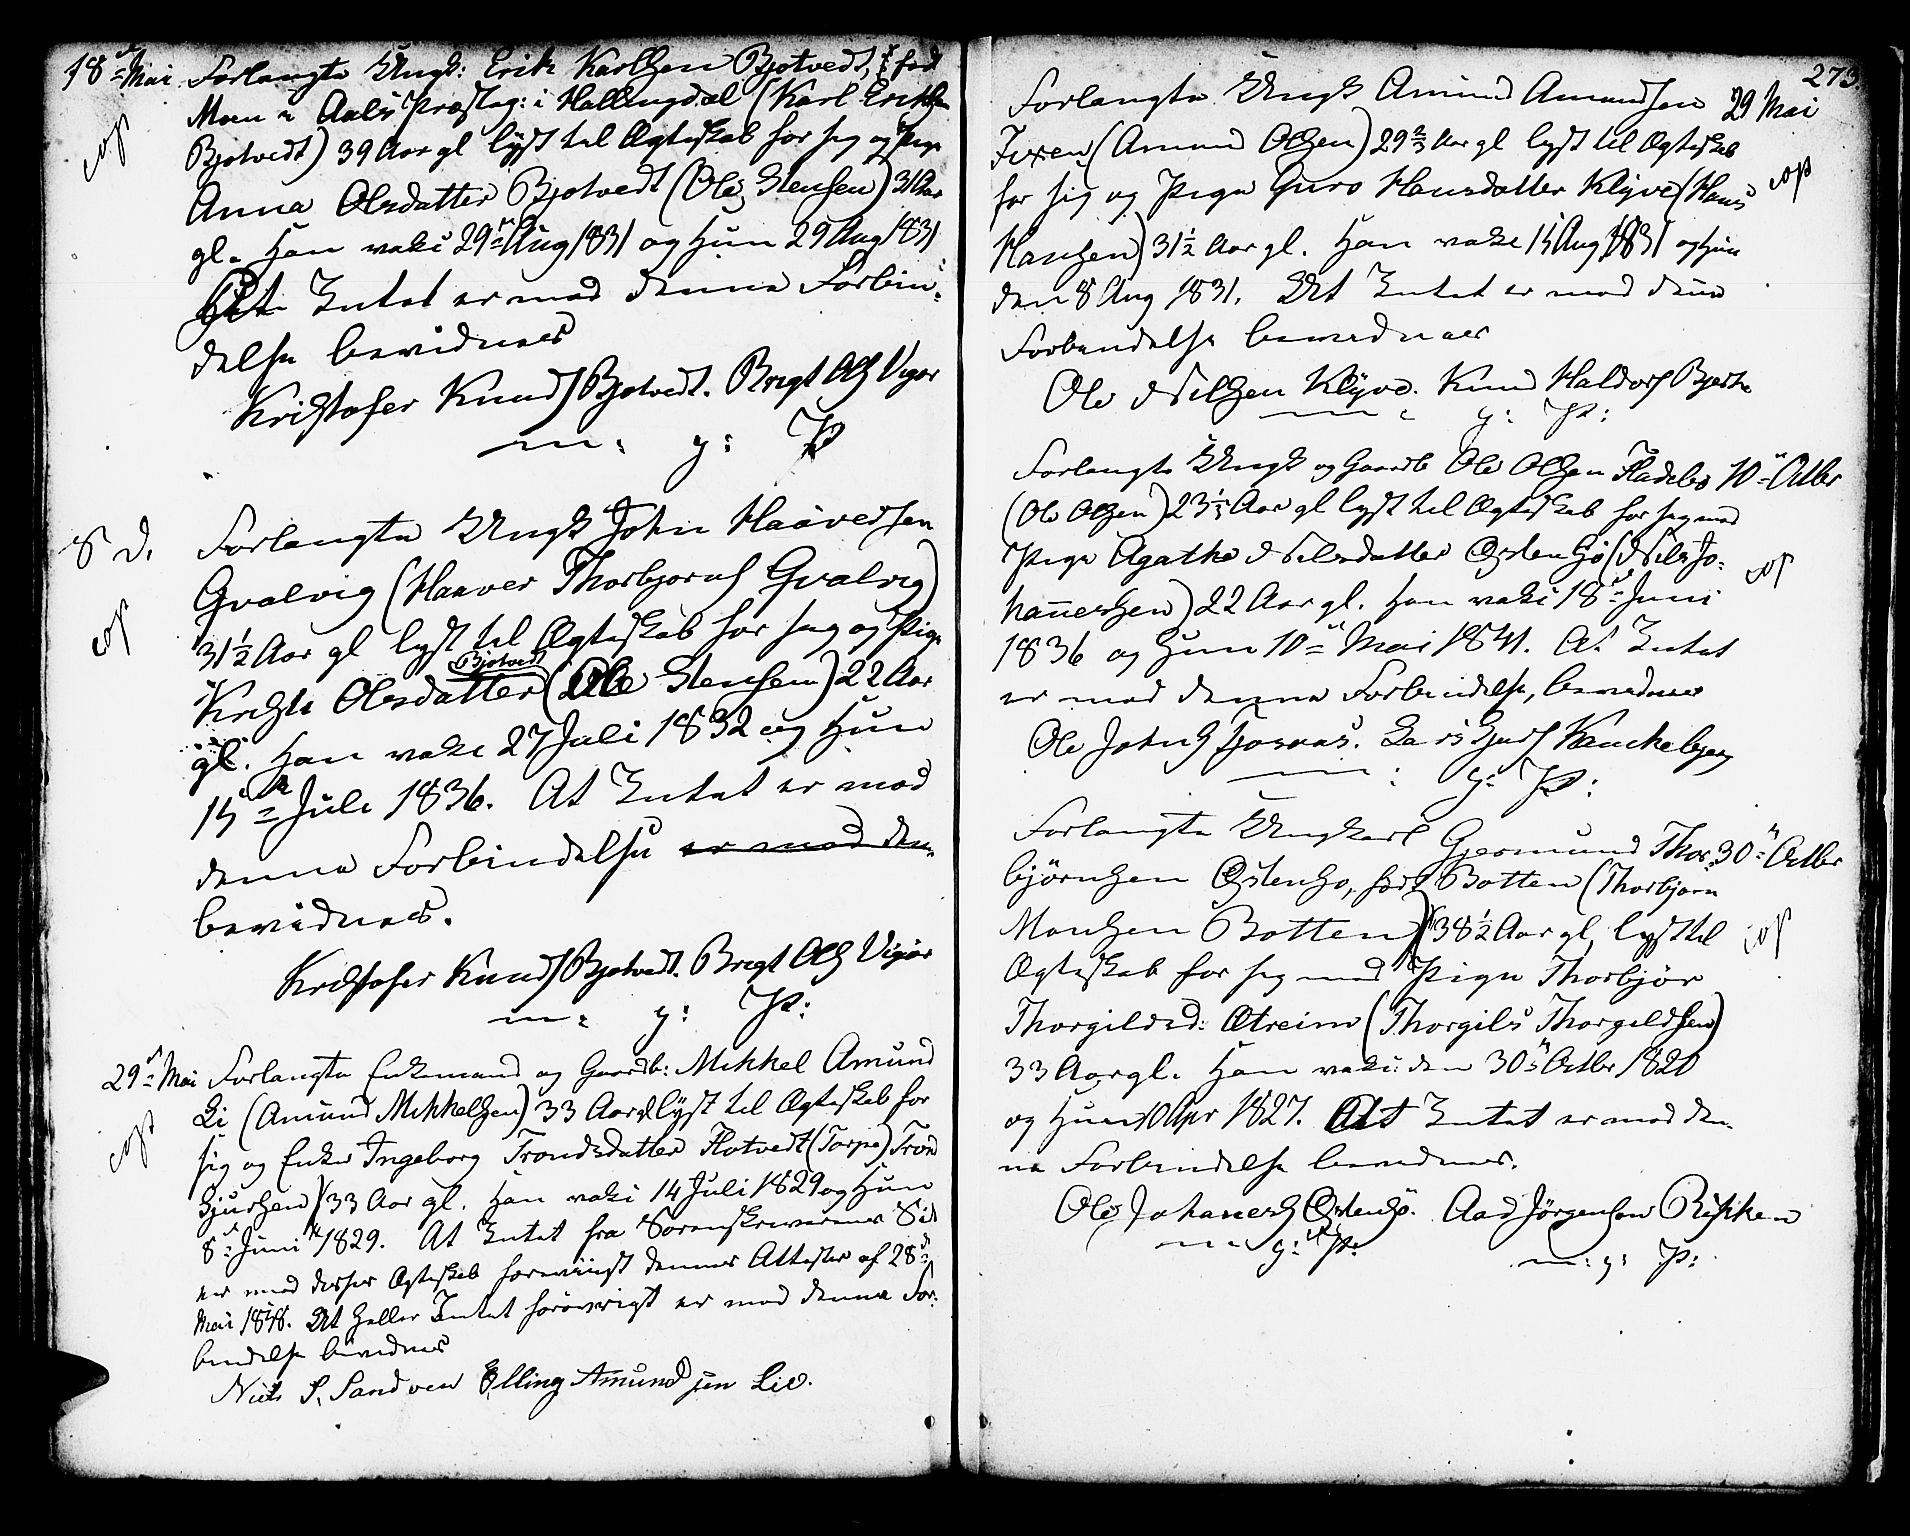 18de Mai Forlangte Ungk: Erik Karlsen Bjotvedt, fød
Moen i Aals Præsteg: i Hallingdal (Karl Eriksen
cop
Bjotvedt) 39 Aar gl lyst til Ægteskab for sig og Pige
Anna Olsdatter Bjotvedt (Ole Stensen) 31 Aar
gl. Han vakc 29de Aug 1831 og Hun 29 Aug 1831
At Intet er mod denne Forbin-
delse bevidnes
Kristofer Knuds Bjotvedt. Bregt Ols Vigør
m: g: P
S d. Forlangte Ungk John Haaversen
Gvalvig (Haaver Thorbjørns Gvalvig)
cop
31½ Aar gl lyst til Ægteskab for sig og Pige
Bjotvedt
Kriste Olsdatter (Ole Stensen) 22 Aar
gl. Han vakc 27 Juli 1832 og Hun
15de Juli 1836. At Intet er mod
denne Forbindelse er mod den-
bevidnes.
Kristofer Knuds Bjotvedt. Bregt Ols Vigør
m: g: P:
29de Mai Forlangte Enkemand og Gaardb: Mikkel Amund
Li (Amund Mikkelsen) 33 Aar gl lyst til Ægteskab for
cop
sig og Enke Ingeborg Trondsdatter Flotvedt (Torpe) Trond
Gjursen) 33 Aar gl. Han vakc 14 Juli 1829 og Hun
8de Juni 1829. At Intet fra Sorenskriverens Side
er mod dette Ægteskab forevist dennes Attester af 28de
Mai 1848. At heller Intet forøvrigt er mod denne For-
bindelse bevidnes
Niels S. Sandven Elling Amundsen Lie.
273
Forlangte Ungk Amund Amundsen 29 Mai
(Amund Olsen) 29⅔ Aar gl lyst til Ægteskab
for sig og Pige Guro Hansdatter Klyve (Hans
cop
Hansen) 31½ Aar gl. Han vakc 15 Aug 1831 og Hun
den 8 Aug 1831. At Intet er mod denne
Forbindelse bevidnes
Ole Nilsen Klyve. Knud Haldors Bjerke
m: g: P:
Forlangte Ungk og Gaardb Ole Olsen Fladebø 10de Octbr
(Ole Olsen) 23⅓ Aar gl lyst til Ægteskab for sig med
Pige Agathe Nilsdatter Østensø (Nils Jo-
cop
hannessen) 22 Aar gl. Han vakc 18de Juni
1836 og Hun 10de Mai 1841. At Intet
er mod denne Forbindelse, bevidnes
Ole Johns Fjosnas. Lars Gjurs Kanckebjerg
m: g: P:
Forlangte Ungkarl Gjermund Thor- 30de Octbr
bjørnsen Østensø, født Botten (Thorbjørn
Monsen Botten) 38½ Aar gl, lyst til
cop
Ægteskab for sig med Pige Thorbjør
Thorgilsd: Ætreim (Thorgils Thorgildsen)
33 Aar gl. Han vakc: den 30te Octbr 1820
og Hun 10 Apr 1827. At Intet er mod den-
ne Forbindelse bevidnes.
Ole Johanes Østensø. Aad Jørgensen Rykken
m: g: P: m: g: P: